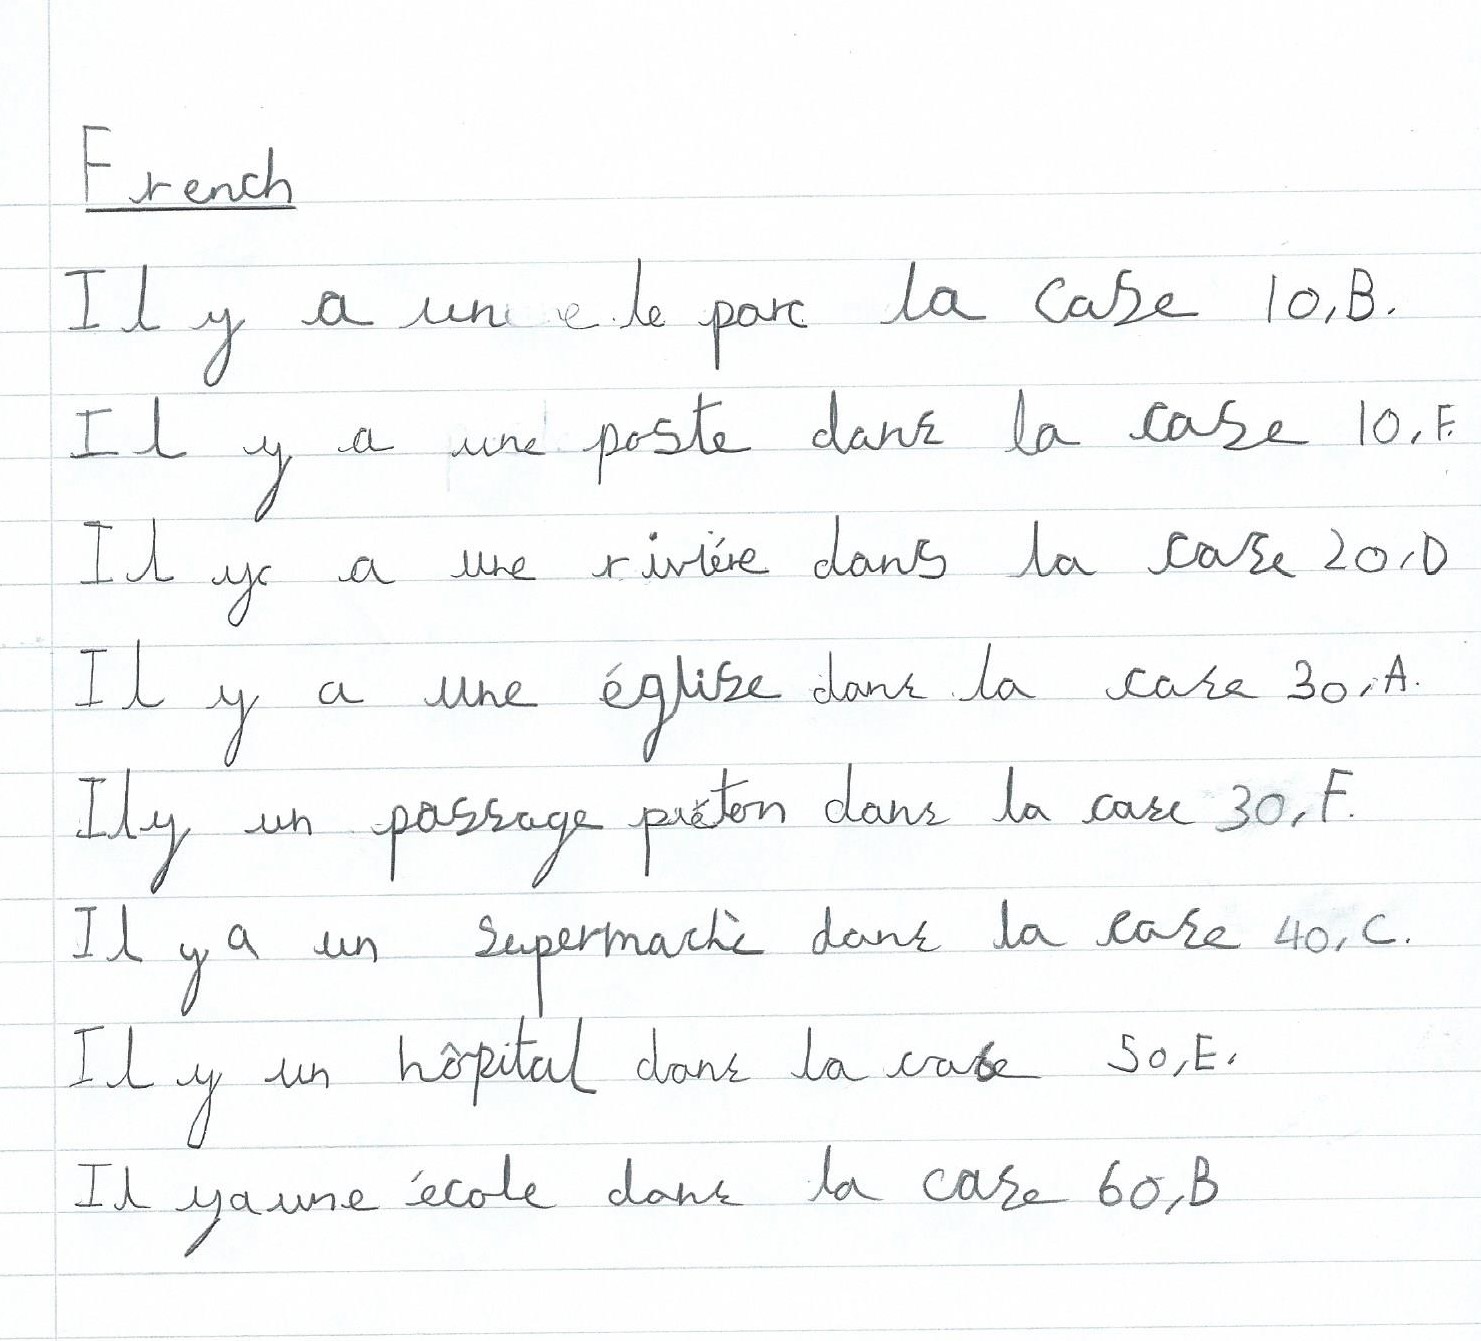 French
Il y a un e le parc la case 10,B.
Il y a une poste dans la case 10,F.
Il y a une riviére dans la case 20,D
Il y a une église dans la case 30,A.
Il y un passage piéton dans la case 30,F.
Il y a un supermaché dans la case 40,C.
Il y un hôpital dans la case 50,E.
Il y a une école dans la case 60,B